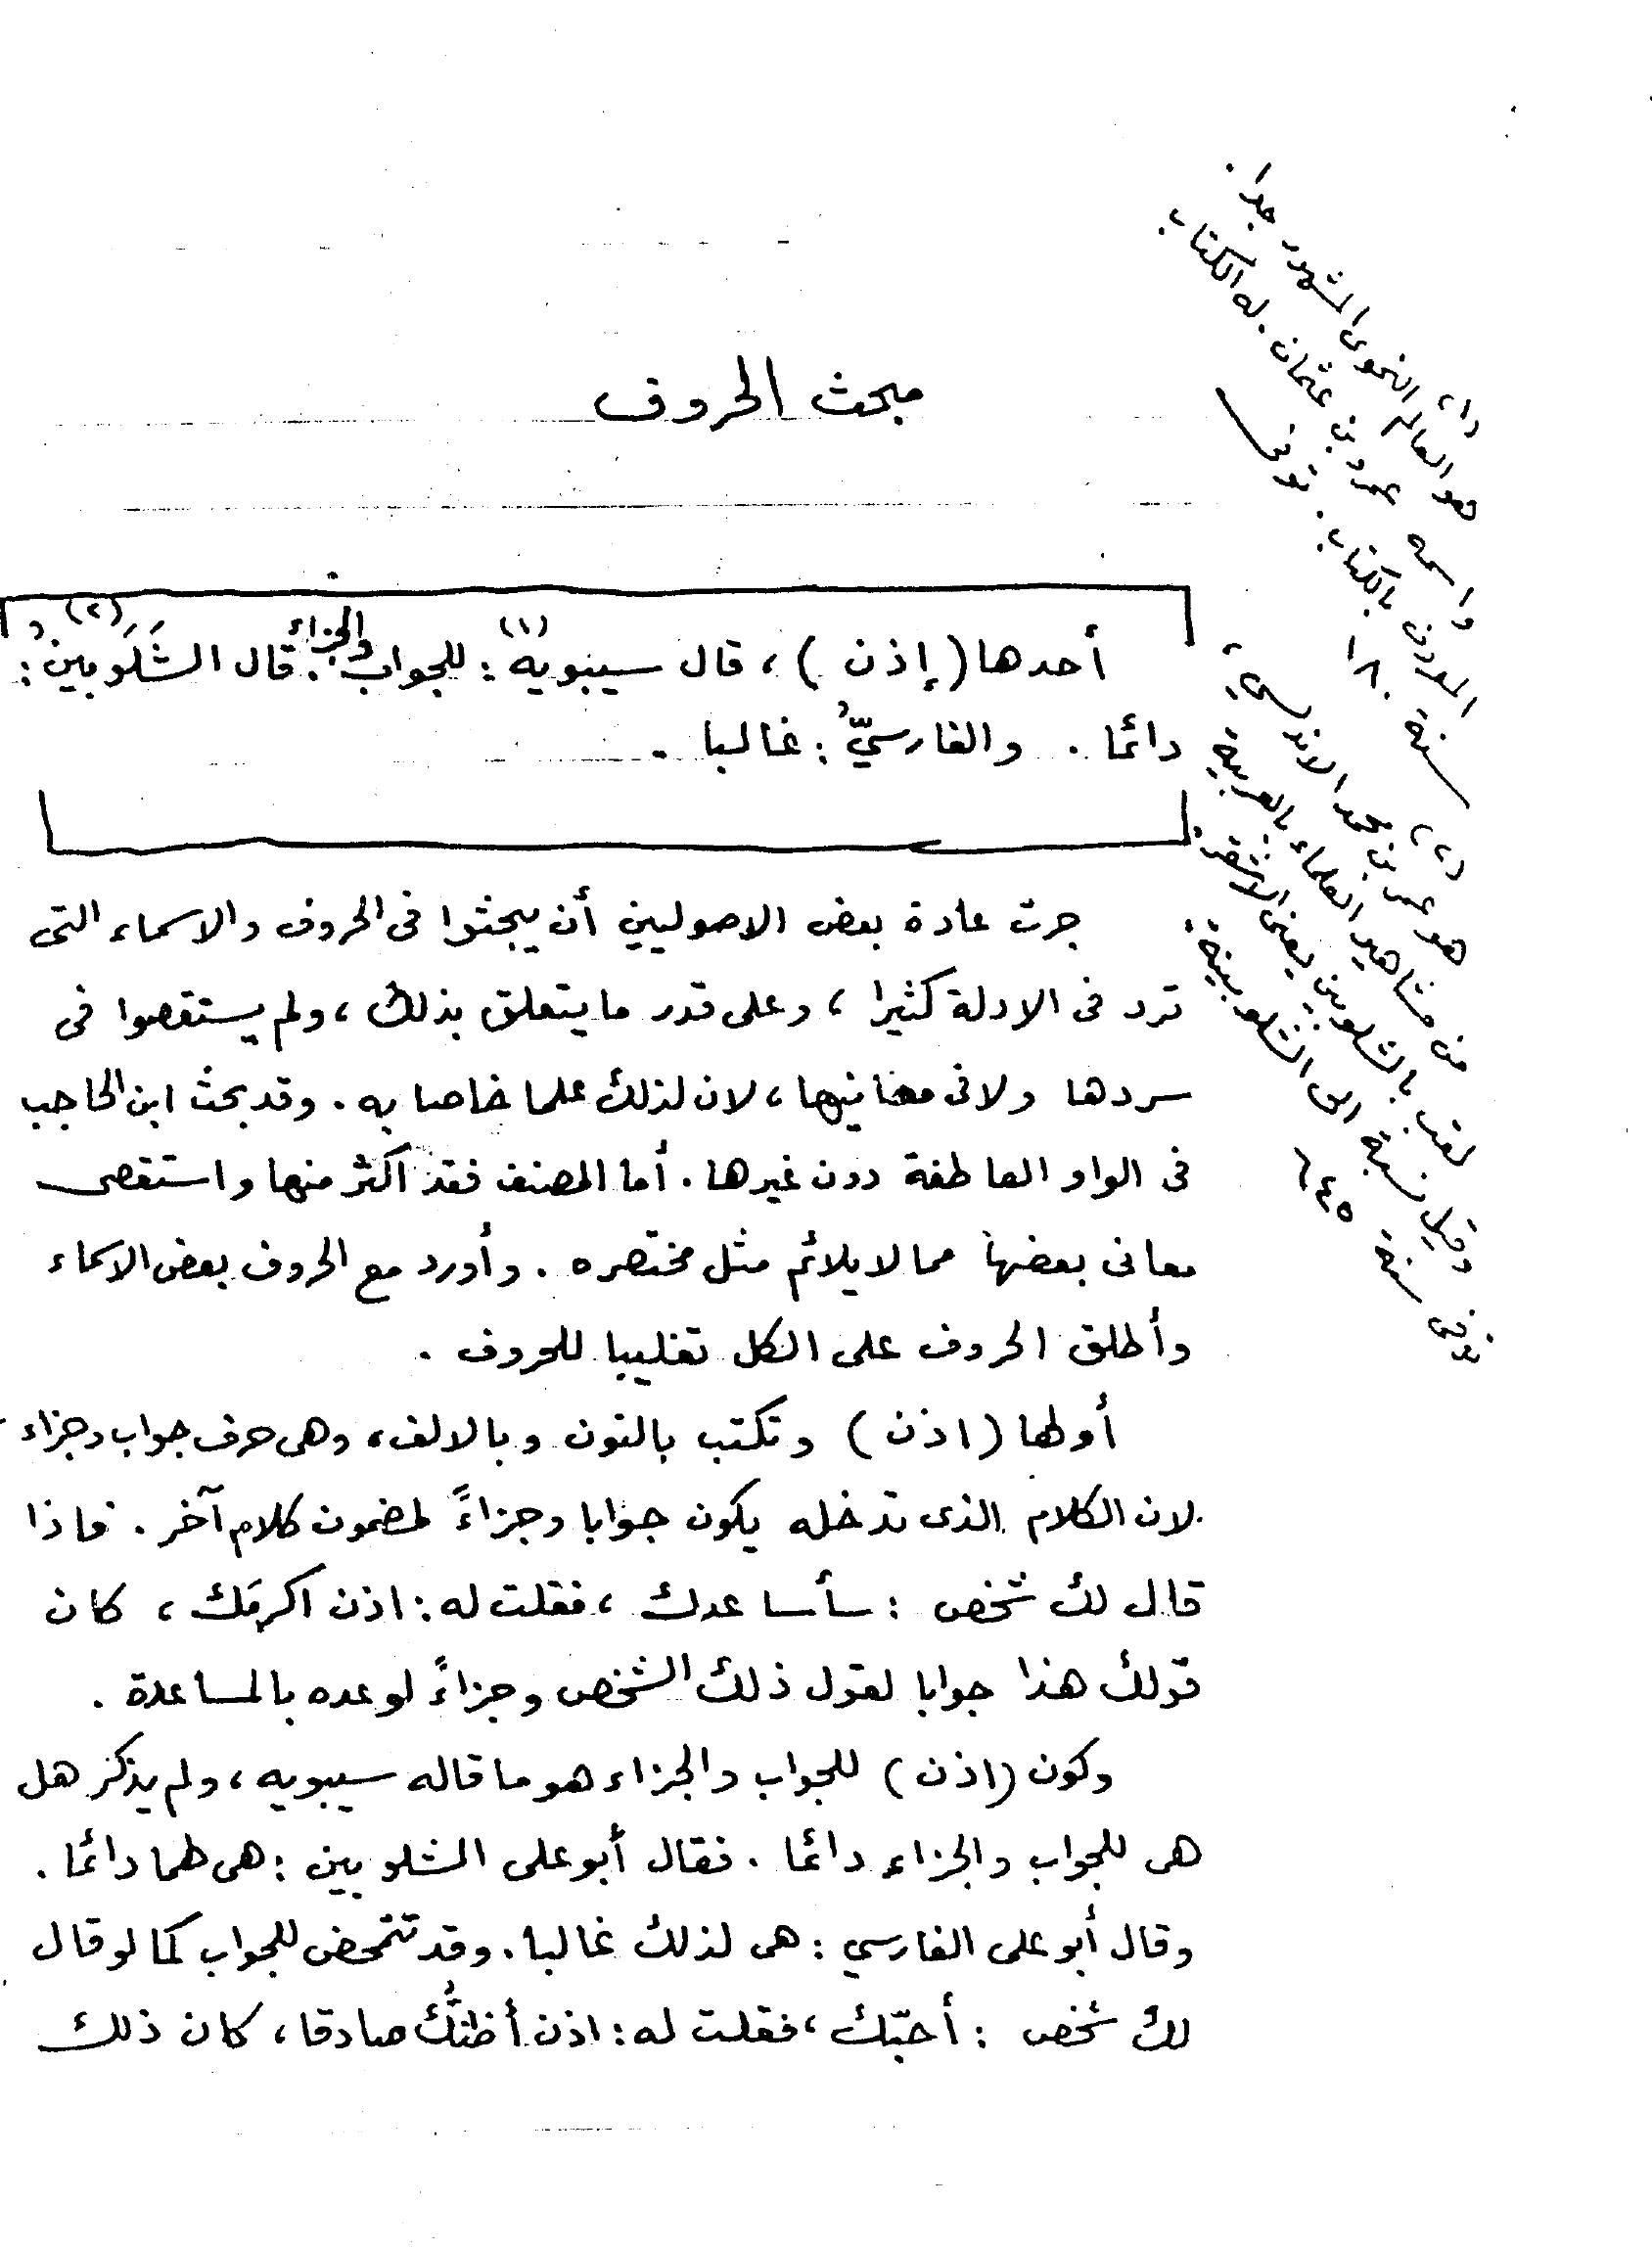 مبحث الحروف
أحدها (إذن) ، قال سيبويه (١) : للجواب والجزاء . قال الشَلَوبينُ (٢) :
دائما . والفارسيُّ : غالبا .
جرت عادة بعض الاصوليين أن يبحثوا فى الحروف والاسماء التى
ترد فى الادلة كثيرا ، وعلى قدر ما يتعلق بذلك ، ولم يستقصوا فى
سردها ولا فى معانيها ، لان لذلك علما خاصا به . وقد بحث ابن الحاجب
فى الواو العاطفة دون غيرها . أما المصنف فقد أكثر منها واستقصى
معانى بعضها مما لا يلائم مثل مختصره . وأورد مع الحروف بعض الاسماء
وأطلق الحروف على الكل تغليبا للحروف .
أولها (اذن) وتكتب بالنون وبالالف ، وهى حرف جواب وجزاء
لان الكلام الذى تدخله يكون جوابا وجزاءً لمضمون كلام آخر . فاذا
قال لك شخص : سأساعدك ، فقلت له : اذن اكرمَك ، كان
قولك هذا جوابا لقول ذلك الشخص وجزاءً لوعده بالمساعدة .
وكون (اذن) للجواب والجزاء هو ما قاله سيبويه ، ولم يذكر هل
هى للجواب والجزاء دائما . فقال أبو على الشلوبين : هى لهما دائما .
وقال أبو على الفارسي : هى لذلك غالبا . وقد تتمحض للجواب كما لو قال
لك شخص : أحبّك ، فقلت له : اذن أظنُّك صادقا ، كان ذلك
(١) هو العالم النحوى المشهور جدا .
واسمه عمرو بن عثمان . له الكتاب
المعروف بالكتاب . توفى
سنة ١٨٠
(٢) هو عمر بن محمد الاندلسي ،
من مشاهير العلماء بالعربية
لقب بالشلوبين يعنى الاشقر .
وقيل نسبة الى الشلوبينية .
توفى سنة ٦٤٥